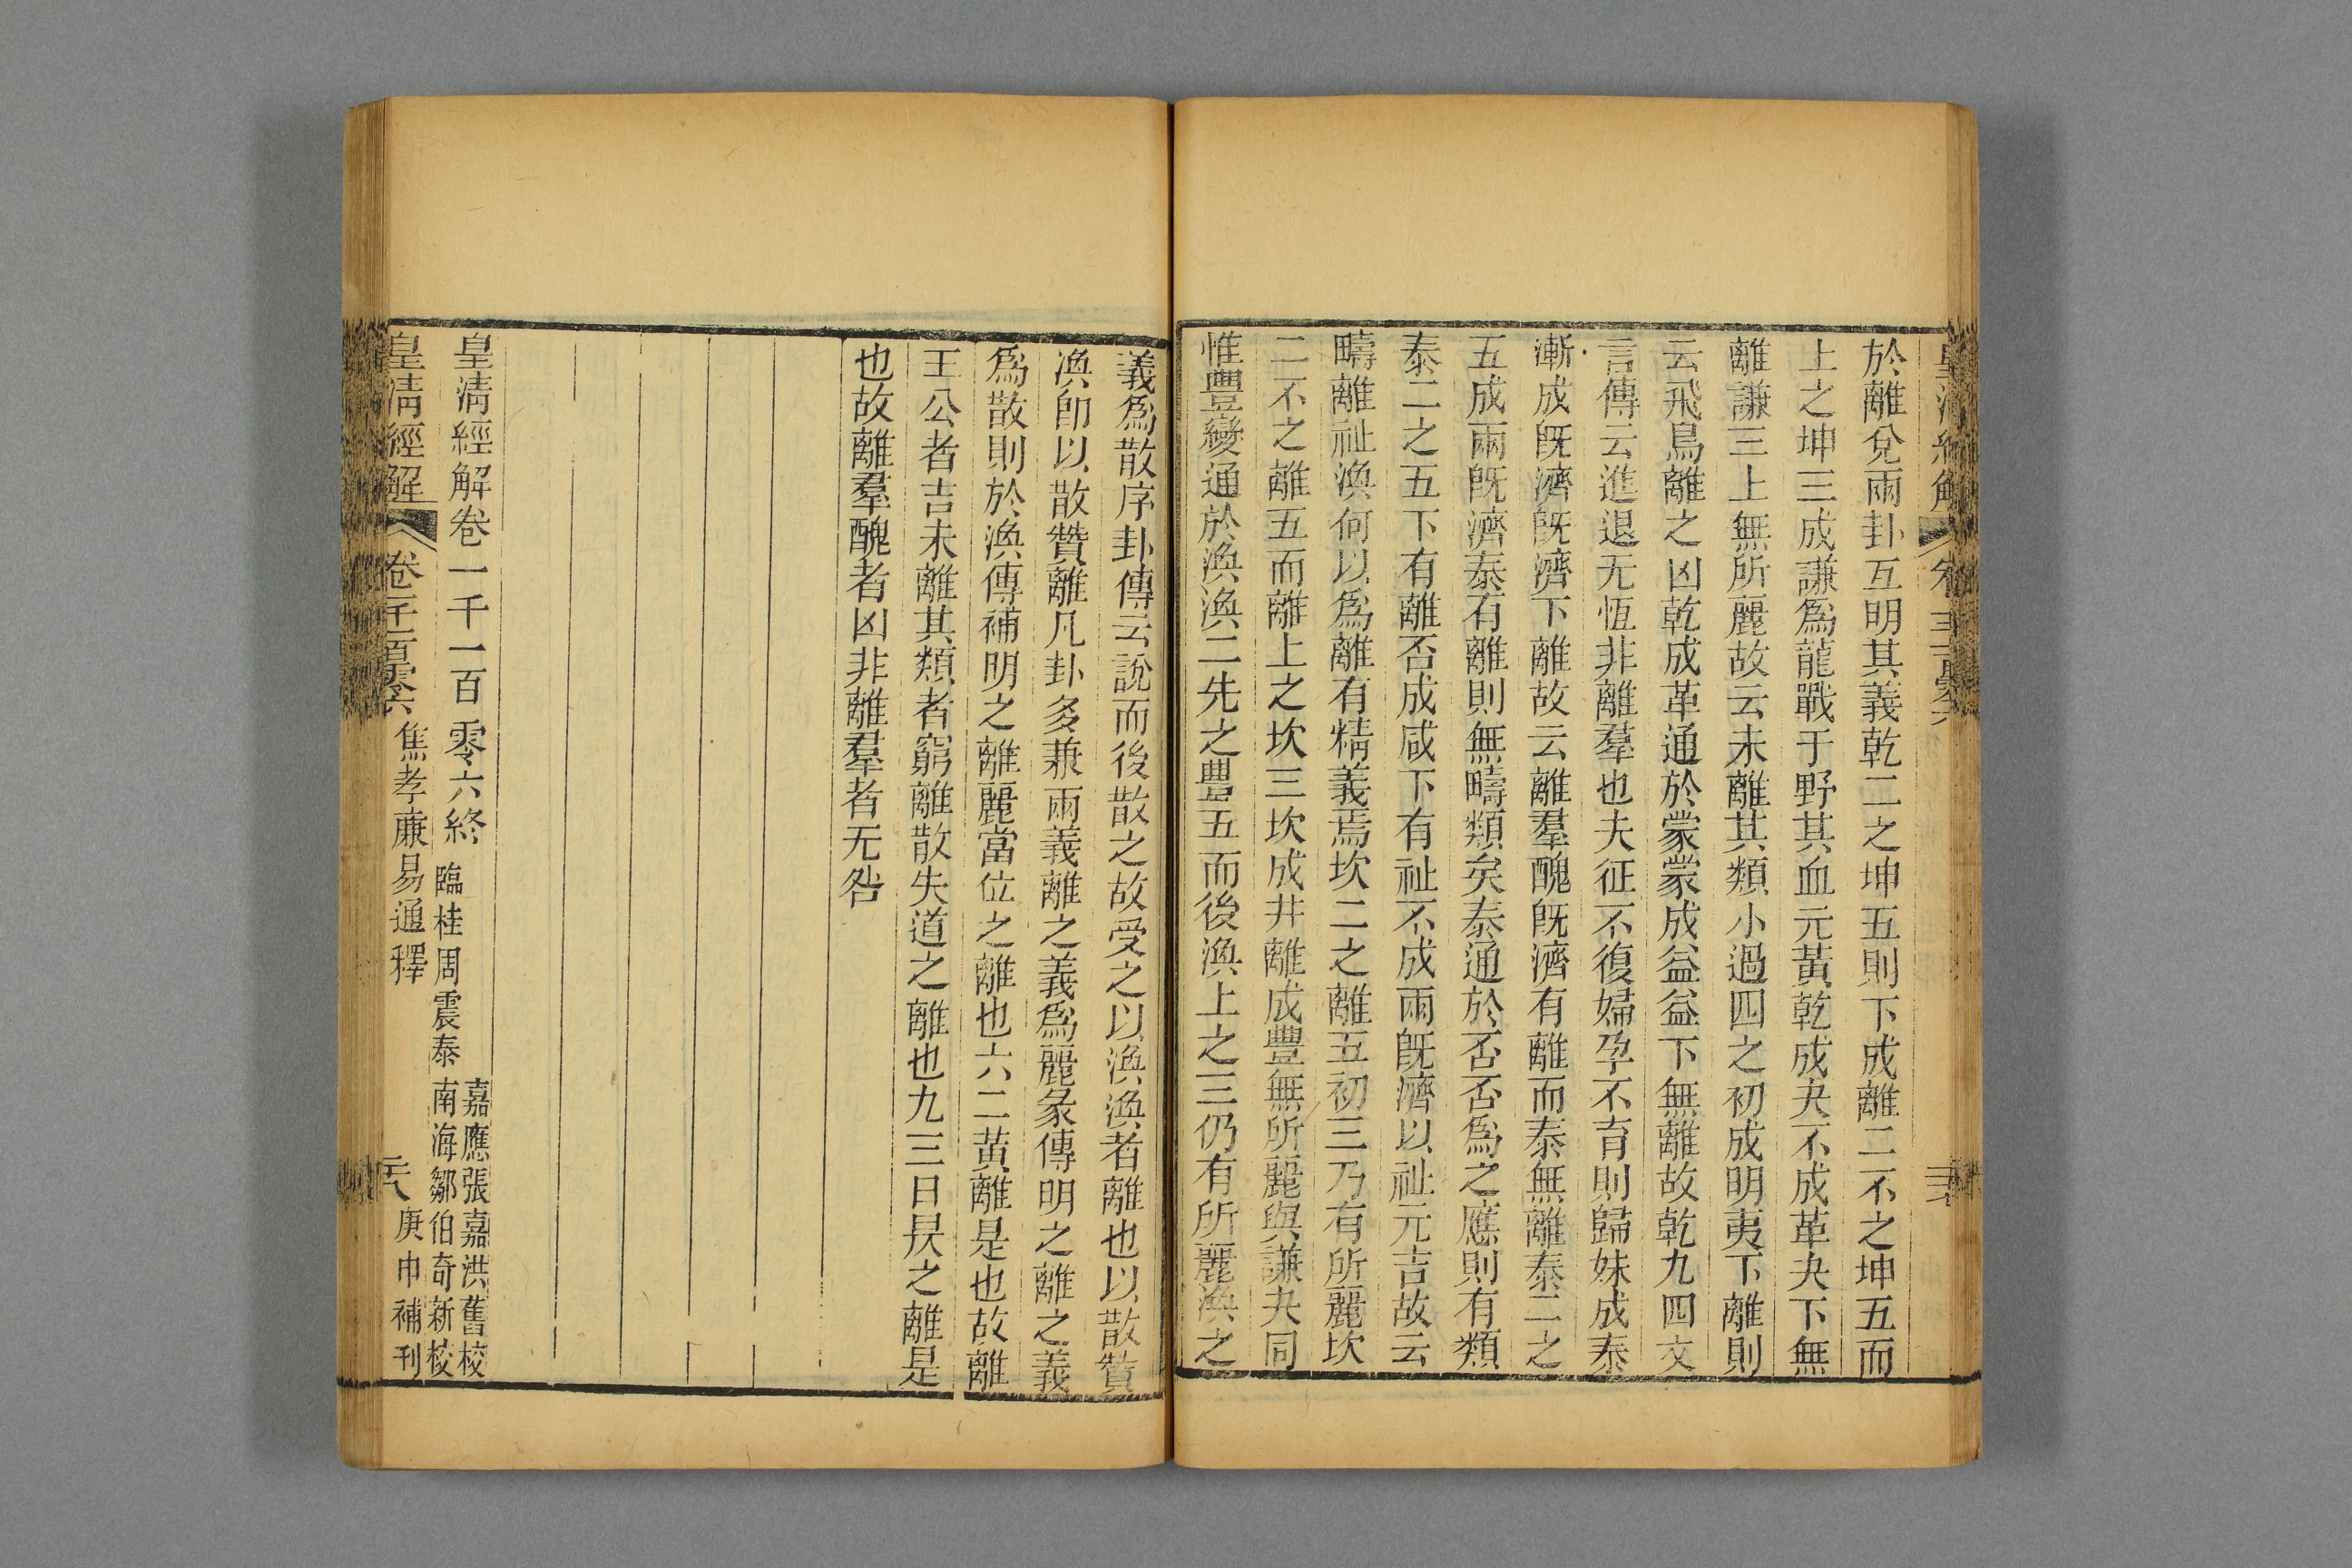 於離兌兩卦互明其義乾二之坤五則下成離二不之坤五而
上之坤三成謙爲龍戰于野其血元黃乾成夬不成革夬下無
離謙三上無所麗故云未離其類小過四之初成明夷下離則
云飛鳥離之凶乾成革通於蒙蒙成益益下無離故乾九四文
言傳云進退无恆非離羣也夫征不復婦孕不育則歸妹成泰
漸成旣濟旣濟下離故云離羣醜旣濟有離而泰無離泰二之
五成兩旣濟泰有離則無疇類矣泰通於否否爲之應則有類
泰二之五下有離否成咸下有祉不成兩旣濟以祉元吉故云
疇離祉渙何以爲離有精義焉坎二之離五初三乃有所麗坎
二不之離五而離上之坎三坎成井離成豐無所麗與謙夬同
惟豐變通於渙渙二先之豐五而後渙上之三仍有所麗渙之
義爲散序卦傳云說而後散之故受之以渙渙者離也以散贊
渙卽以散贊離凡卦多兼兩義離之義爲麗彖傳明之離之義
爲散則於渙傳補明之離麗當位之離也六二黃離是也故離
王公者吉未離其類者窮離散失道之離也九三日昃之離是
也故離羣醜者凶非離羣者无咎
皇清經解卷一千一百零六終
臨桂周震泰
嘉應張嘉洪舊校
南海鄒伯奇新校
皇清經解 卷一千一百零六 焦孝廉易通釋 庚申補刊